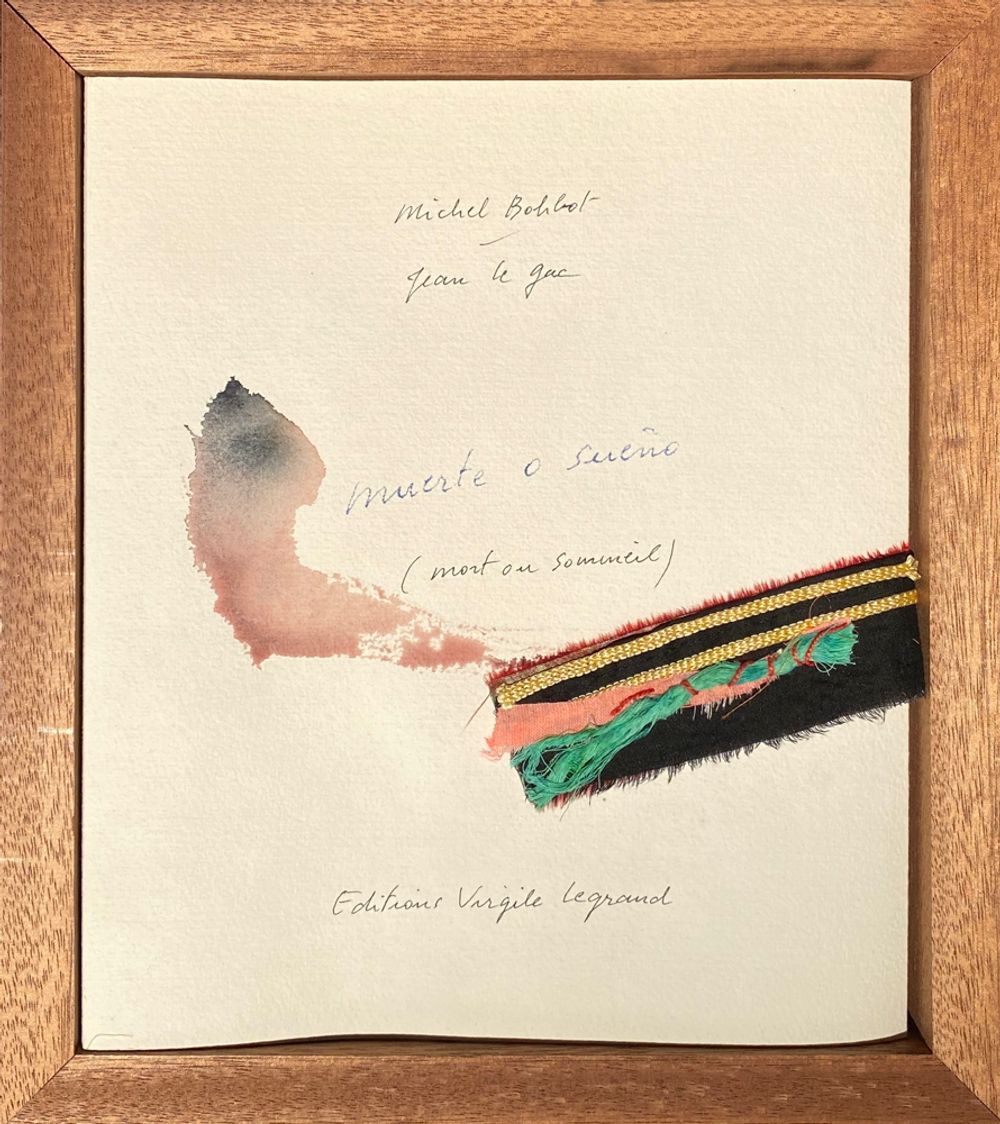 Michel Bohbot
Jean le gac
muerte o sueño
(mort ou sommeil)
Editions Virgile Legrand